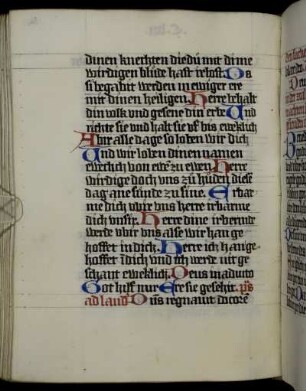 dinen knechten die du mit dime
wirdigen blude hast irlost Das
si begabit werden in ewiger ere
mit dinen heiligen. Herre behalt
din volk und gesene din erbe Und
richte sie und halt sie uf bis eweklich
Abir alle dage so loben wir dich
Und wir loben dinen namen
eweclich von ewe zu ewen Herre
wirdige doch uns zu huden diese
dag ane sunde zu sine. Erbar
me dich ubir uns herre irbarme
dich unsir. Herre dine irbermde
werde ubir uns alse wir han ge
hoffet in dich. Herre ich han ge
hoffet in dich und ich werde nit ge
schant eweklich. Deus in adiuto
Got hilf mir Ere sie geseit. ps
ad laud Dns regnavit decore